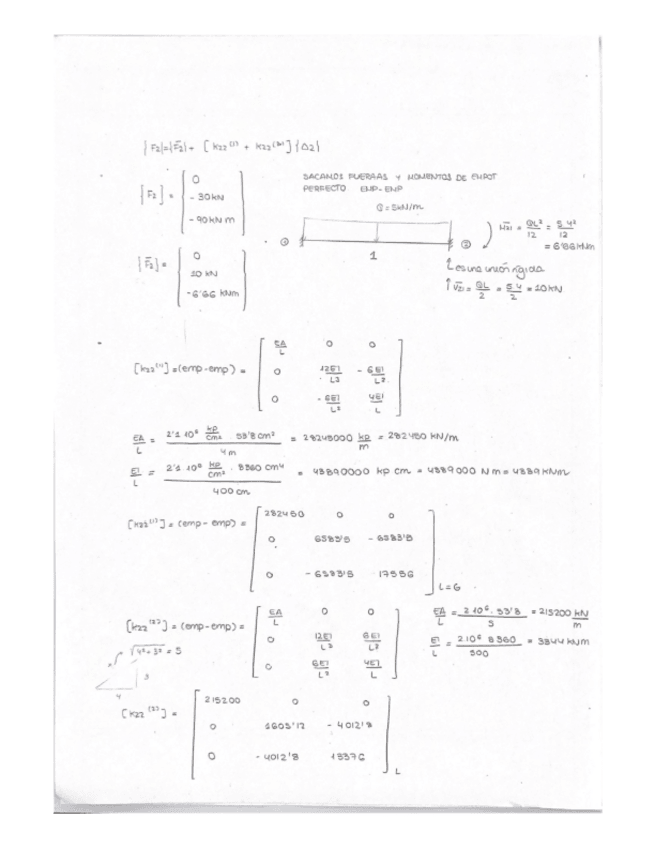 {F2}={F̅2}+ [K22⁽¹⁾ + K22⁽²⁾]{Δ2}
SACANDO FUERZAS Y MOMENTOS DE EMPOT
PERFECTO EMP-EMP
[F2] = [0
- 30KN
- 90KN m]
Q=5KN/m
① 1 ②
M̅21 = QL²/12 = 5 4²/12
= 6'66 KNm
[F̅2] = [0
10 KN
-6'66 KNm]
es una unión rígida
V̅21 = QL/2 = 5 4/2 = 10KN
[K22⁽¹⁾] =(emp-emp) = [EA/L 0 0
0 12EI/L³ - 6EI/L²
0 - 6EI/L² 4EI/L]
EA/L = 2'1 10⁶ kp/cm² 53'8 cm² / 4 m = 28245000 kp/m = 282450 KN/m
EI/L = 2'1 10⁶ kp/cm² · 8360 cm⁴ / 400 cm = 43890000 kp cm = 4389000 N m = 4389 KNm
[K22⁽¹⁾] = (emp-emp) = [282450 0 0
0 6583'5 - 6583'5
0 - 6583'5 17556] L=G
[K22⁽²⁾] = (emp-emp) = [EA/L 0 0
0 12EI/L³ 6EI/L²
0 6EI/L² 4EI/L]
EA/L = 2 10⁶ · 53'8 / 5 = 215200 KN/m
EI/L = 2 10⁶ 8360 / 500 = 3344 KNm
√4²+3² = 5
3
4
[K22⁽²⁾] = [215200 0 0
0 1605'12 - 4012'8
0 - 4012'8 13376] L